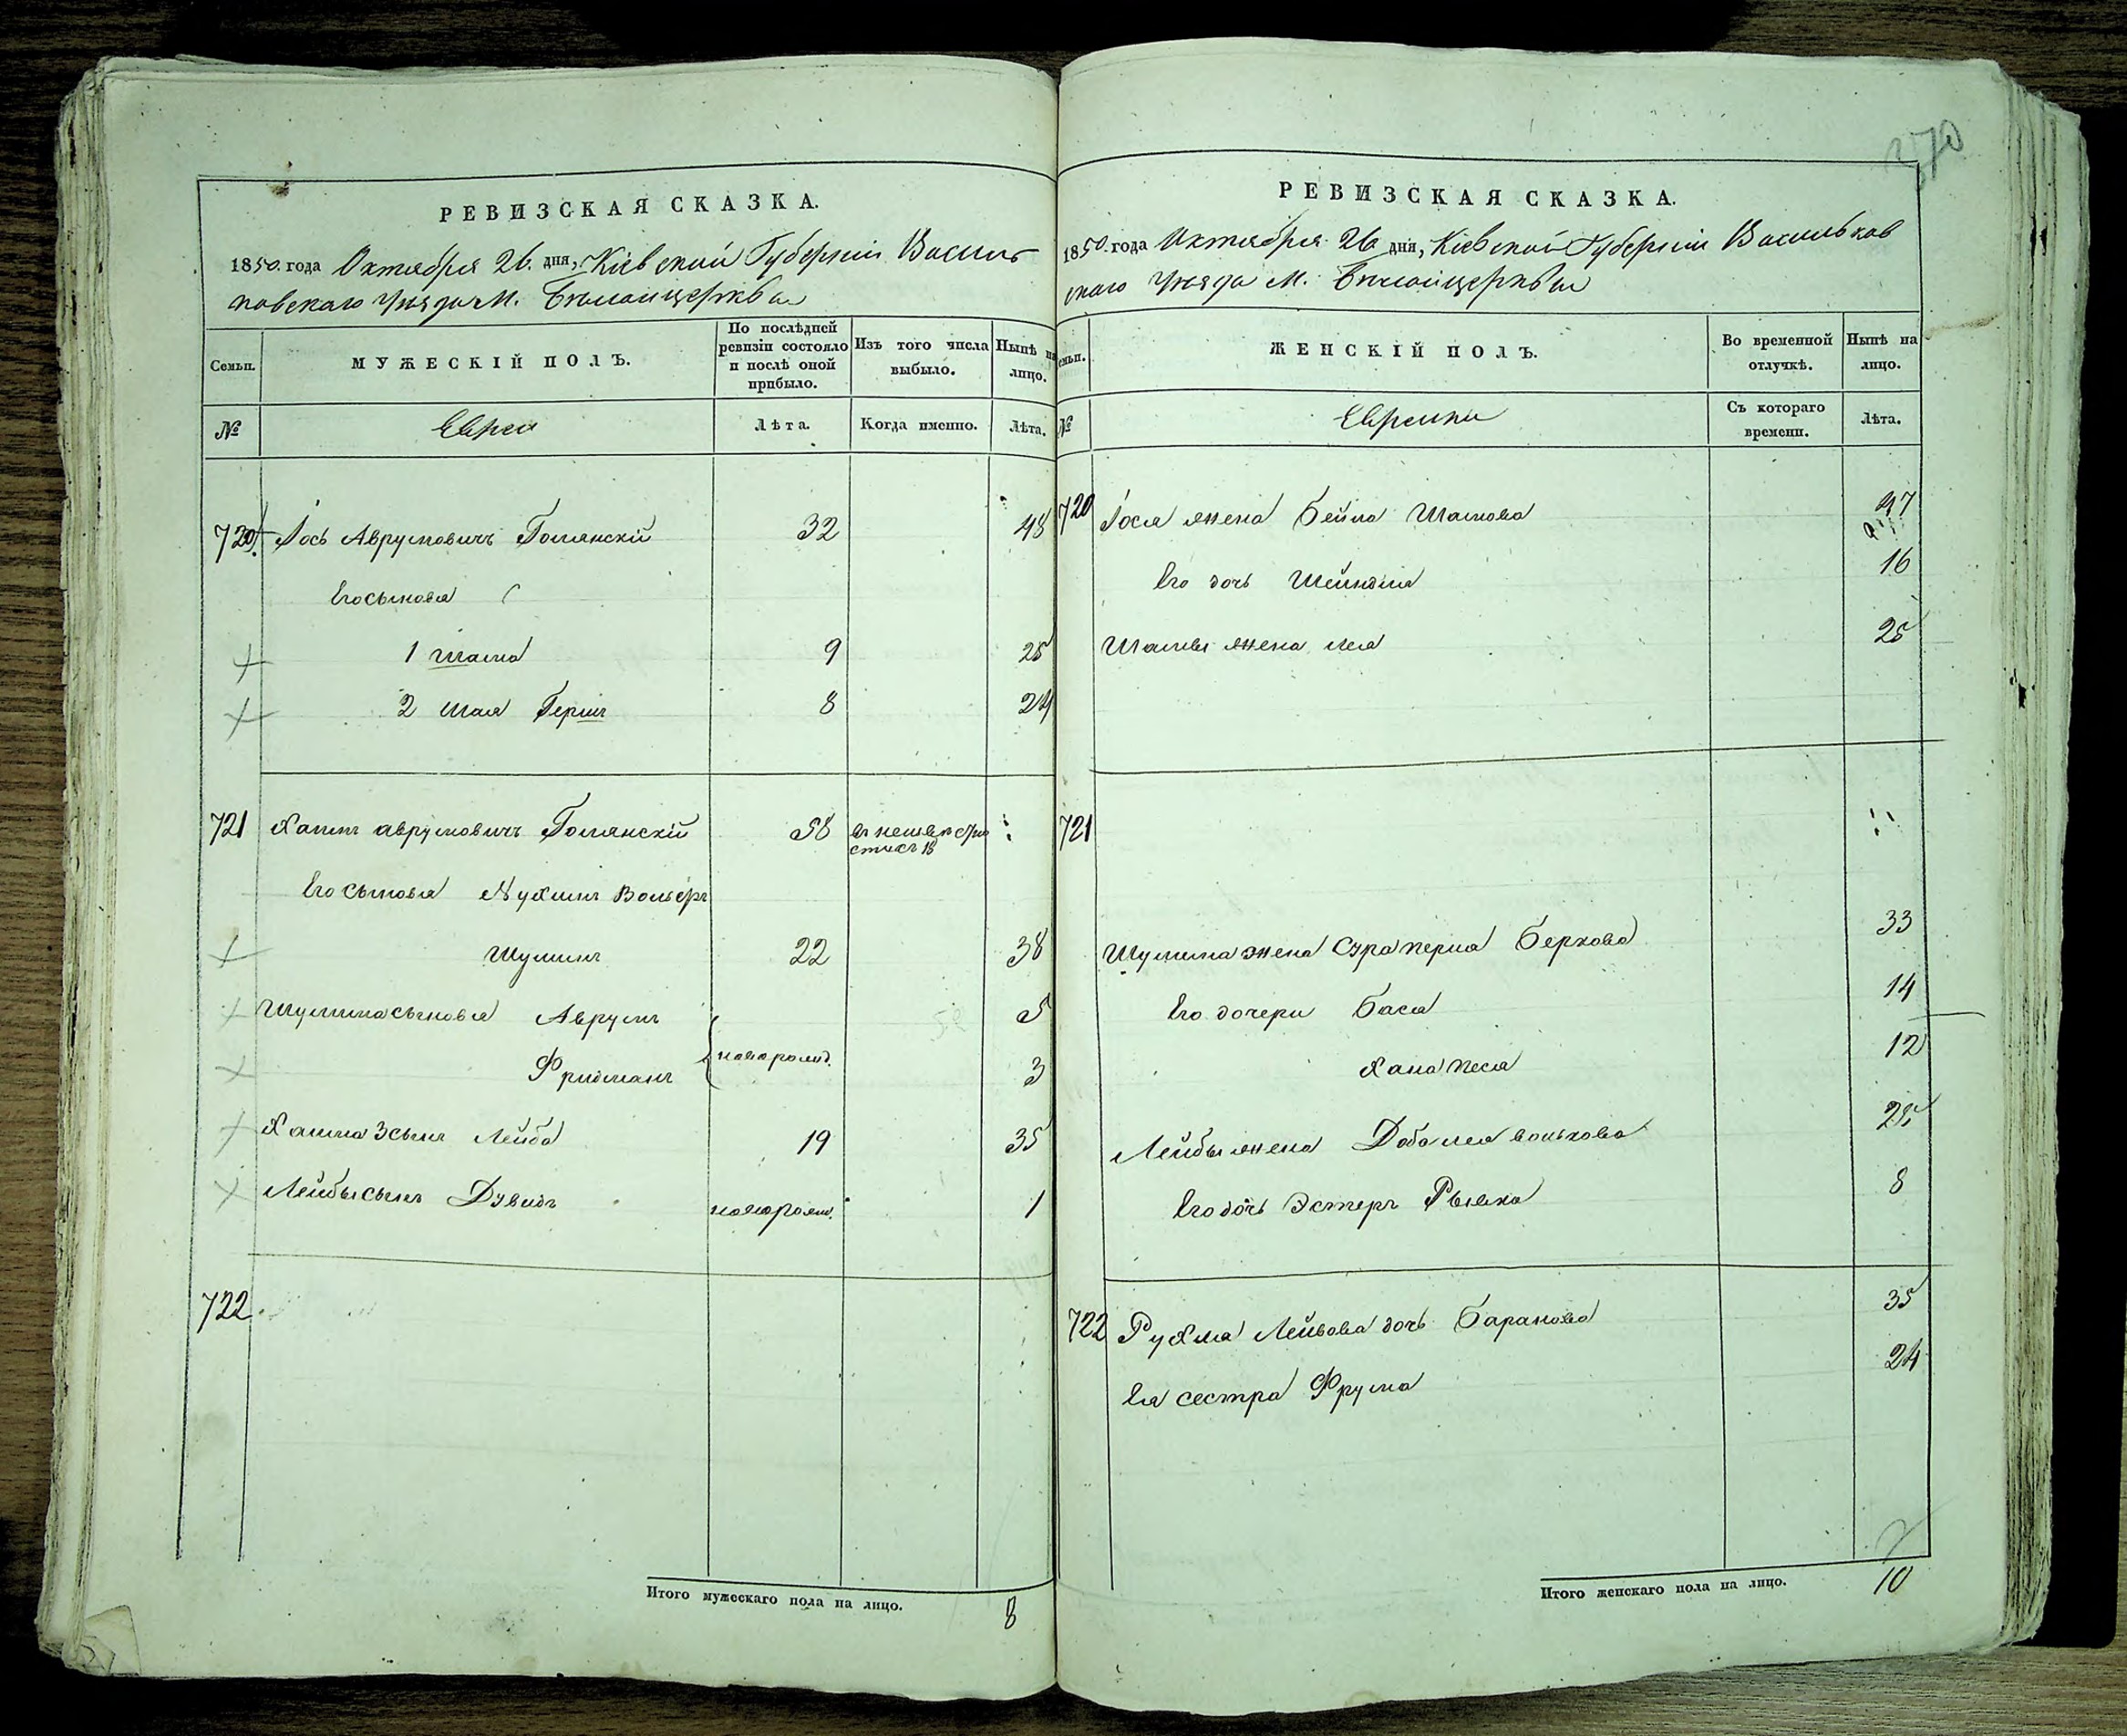 РЕВИЗСКАЯ СКАЗКА.
1850. года Октября 26. дня, Кіевской Губерніи Василь
ковскаго Уѣзда М. Бѣлойцеркви
Семьи.
МУЖЕСКІЙ ПОЛЪ.
По послѣдней ревизіи состояло и послѣ оной прибыло.
Изъ того числа выбыло.
Нынѣ на лицо.
№
Евреи
Лѣта.
Когда именно.
Лѣта.
720. Іось Аврумовичъ Голянскій 32 48
Его сыновья
1 Шама 9 25
2 Шая Гершъ 8 24
721 Хаимъ Аврумовичъ Голянскій 58
Его сыновья Нухимъ Вольфъ
Шулимъ 22 38
Шулима сыновья Аврумъ 5
новорожд.
Фридманъ 3
Хаима 3 сынъ Лейба 19 35
Лейбы сынъ Дувидъ новорожд. 1
722
Итого мужескаго пола на лицо. 8
270
РЕВИЗСКАЯ СКАЗКА.
1850. года Октября 26 дня, Кіевской Губерніи Васильков
скаго Уѣзда М. Бѣлойцеркви
Семьи.
ЖЕНСКІЙ ПОЛЪ.
Во временной отлучкѣ.
Нынѣ на лицо.
№
Еврейки
Съ котораго времени.
Лѣта.
720 Іося жена Бейла Шамова 47
Его дочь Шейндля 16
Шамы жена Лея 25
721
Шулима жена Сура Перля Беркова 33
Его дочери Бася 14
Хана Песя 12
Лейбы жена Доба Лея Волькова 25
Его дочь Эстеръ Рывка 8
722 Рухля Лейбова дочь Баранова 35
Ея сестра Фрума 24
Итого женскаго пола на лицо. 10